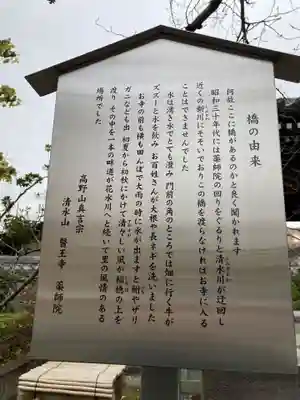 橋の由来
何故ここに橋があるのかと良く聞かれます
昭和三十年代には薬師院の回りをぐるりと清水川が迂回し
近くの新川にそそいでおりこの橋を渡らなければお寺に入る
ことはできませんでした
水は湧き水でとても澄み 門前の角のところでは畑に行く牛が
ズズーと水を飲み お百姓さんが大根や長ネギを洗いました
お寺の前も横も田んぼで大雨の時に水が出ますと鮒やザリ
ガニなども出 初夏から初秋にかけて清々しい風が稲穂の上を
渡り その中を一本の畔道が花水川へと続いて里の風情のある
場所でした
高野山真言宗
清水山 醫王寺 薬師院